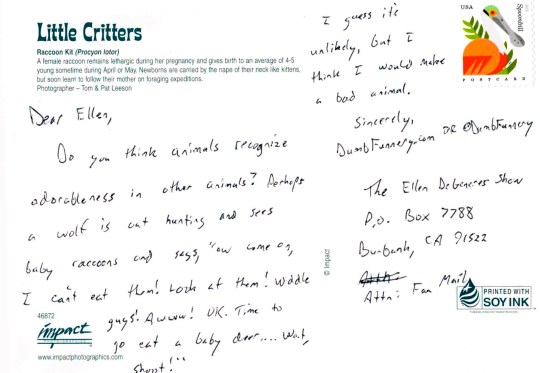 Little Critters
Raccoon Kit (Procyon lotor)
A female raccoon remains lethargic during her pregnancy and gives birth to an average of 4-5
young sometime during April or May. Newborns are carried by the nape of their neck like kittens,
but soon learn to follow their mother on foraging expeditions.
Photographer – Tom & Pat Leeson
Dear Ellen,
Do you think animals recognize
adorableness in other animals? Perhaps
a wolf is out hunting and sees
baby raccoons and says, "aw come on,
I can't eat them! Look at them! Widdle
guys! Awww! OK. Time to
go eat a baby deer.... Wait,
shoot!"
46872
impact
www.impactphotographics.com
© Impact
I guess it's
unlikely, but I
think I would make
a bad animal.
Sincerely,
DumbFunnery.com OR @DumbFunnery
USA
Spoonbill
POSTCARD
The Ellen DeGeneres Show
P.O. Box 7788
Burbank, CA 91522
Attn:
Attn: Fan Mail
PRINTED WITH
SOY INK